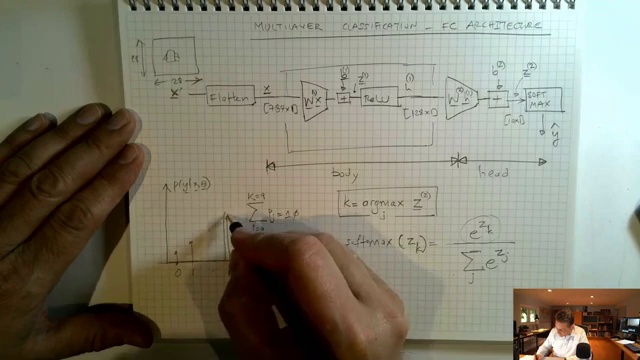 MULTICLASS CLASSIFICATION - FC ARCHITECTURE
28
28
x
Flatten
x
[784x1]
W⁽¹⁾x
b⁽¹⁾
+
z⁽¹⁾
ReLU
h⁽¹⁾
[128x1]
W⁽²⁾h⁽¹⁾
b⁽²⁾
+
z⁽²⁾
[10x1]
SOFT
MAX
ŷ
body
head
p(y|x,θ)
K=9
∑ Pj = 1.0
k = argmax z⁽²⁾
softmax (z_k) = e^{z_k}
∑_j e^{z_j}
0
1